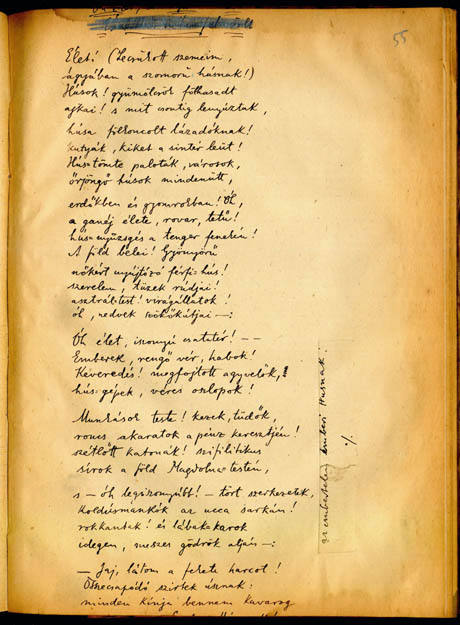 55
Élet! (Lecsukott szemeim,
ágyúban a szomorú húsnak!)
Húsok! gyümölcsök fölhasadt
ajkai! s mit csontig lenyúztak,
húsa fölkoncolt lázadóknak!
kutyák, kiket a sintér leüt!
Hústömte paloták, városok,
őrjöngő húsok mindenütt,
erdőkben és gyomrokban! Óh,
a ganéj élete, rovar, tetű!
hús-nyüzsgés a tenger fenekén!
A föld belei! Gyönyörű
nőkért nyújtózó férfi-hús!
szerelem, tüzek rúdjai!
asztrál-test! virágállatok!
ól, nedvek szökőkútjai —:
Óh élet, iszonyú csatatér! — —
Emberek, rengő vér, habok!
Keveredés! megfojtott agyvelők,
hús-gépek, véres oszlopok!
Munkások teste! kezek, tüdők,
roncs akaratok a pénz keresztjén!
szétlőtt katonák! szifilitikus
sírok a föld Magdolna-testén,
s — óh legiszonyúbb! — tört szerkezetek,
koldúsmankók az ucca sarkán!
rokkantak! és lábak, karok
idegen, meszes gödrök alján —:
— Jaj, látom a fekete harcot!
Összecsapódó szirtek úsznak:
minden kínja bennem kavarog
az embertelen emberi Húsnak.